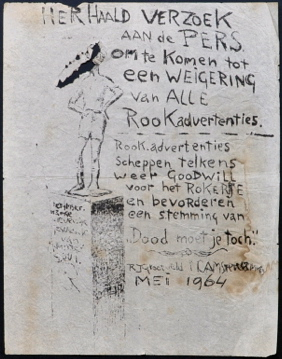 HERHAALD VERZOEK
AAN de PERS
om te Komen tot
een WEIGERING
van ALLE
Rookadvertenties.
Rook.advertenties
Scheppen telkens
weer GOODWILL
voor het ROKERTJE
en bevorderen
een stemming van
"Dood moet je toch".
MEI 1964